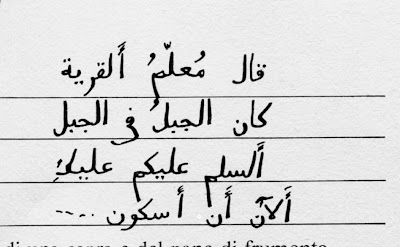 قال مُعلّمُ أَلقرية
كان الجبلُ في الجبل
أَلسلم عليكم عليكِ
أَلآنَ أَن أَسكون ....
di una casa e dal pane di frumento